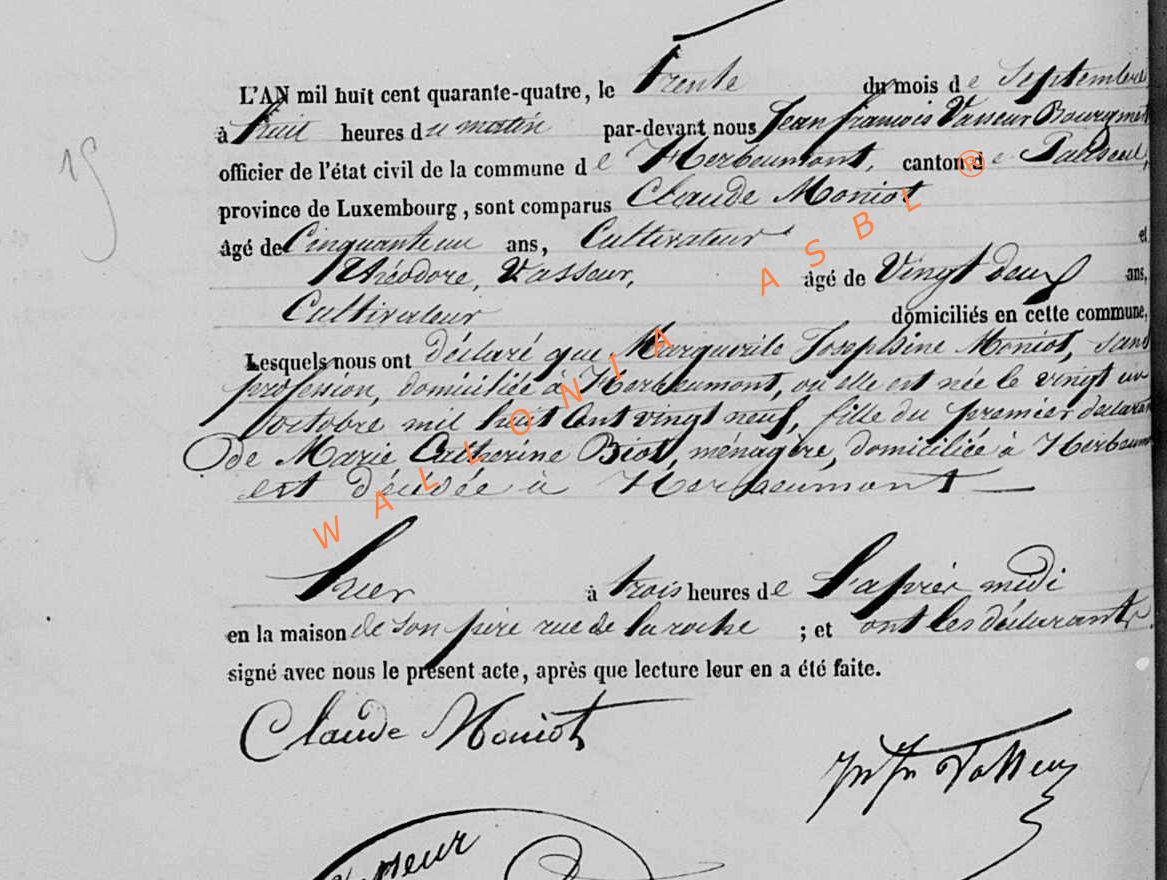 15
L'AN mil huit cent quarante-quatre, le trente du mois de Septembre
à huit heures du matin par-devant nous Jean francois Vasseur Bourgmest
officier de l'état civil de la commune de Herbeumont, canton de Paliseul,
province de Luxembourg, sont comparus Claude Moniot
âgé de Cinquante un ans, Cultivateur et
Théodore, Vasseur, âgé de Vingt deux ans,
Cultivateur domiciliés en cette commune,
Lesquels nous ont déclaré que Marguerite Josephine Moniot, sans
profession, domiciliée à Herbeumont, où elle est née le vingt un
octobre mil huit Cent vingt neuf, fille du premier déclarant
de Marie Catherine Biot, ménagère, domiciliée à Herbeumo
est décédée à Herbeumont
hier à trois heures de l'après midi
en la maison de son père rue de la roche ; et ont les déclarants
signé avec nous le présent acte, après que lecture leur en a été faite.
Claude Moniot
Vasseur
WALLONIA ASBL ®